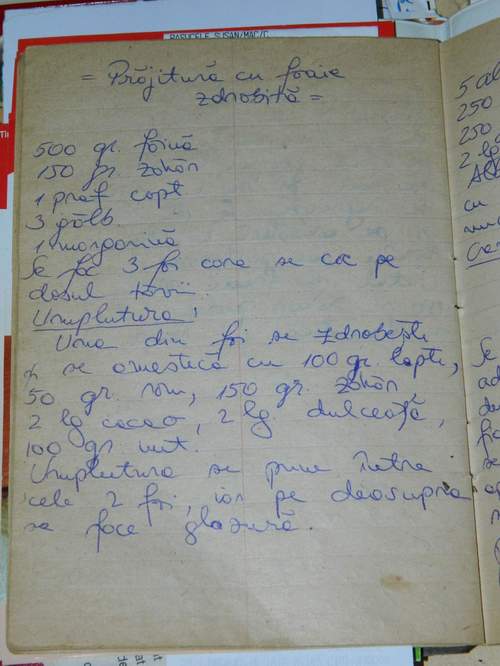 RASUCELE SUSAN/MAC/C
= Prăjitură cu foaie
zdrobită =
500 gr. făină
150 gr. zahăr
1 praf copt
3 gălb.
1 margarină
Se fac 3 foi care se coc pe
dosul tăvii.
Umplutura:
Una din foi se zdrobește
și se amestică cu 100 gr. lapte,
50 gr. rom, 150 gr. zahăr
2 lg cacao, 2 lg dulceață,
100 gr unt.
Umplutura se pune între
cele 2 foi, iar pe deasupra
se face glazură.
5 al
250
250
2 lg
cu
Se